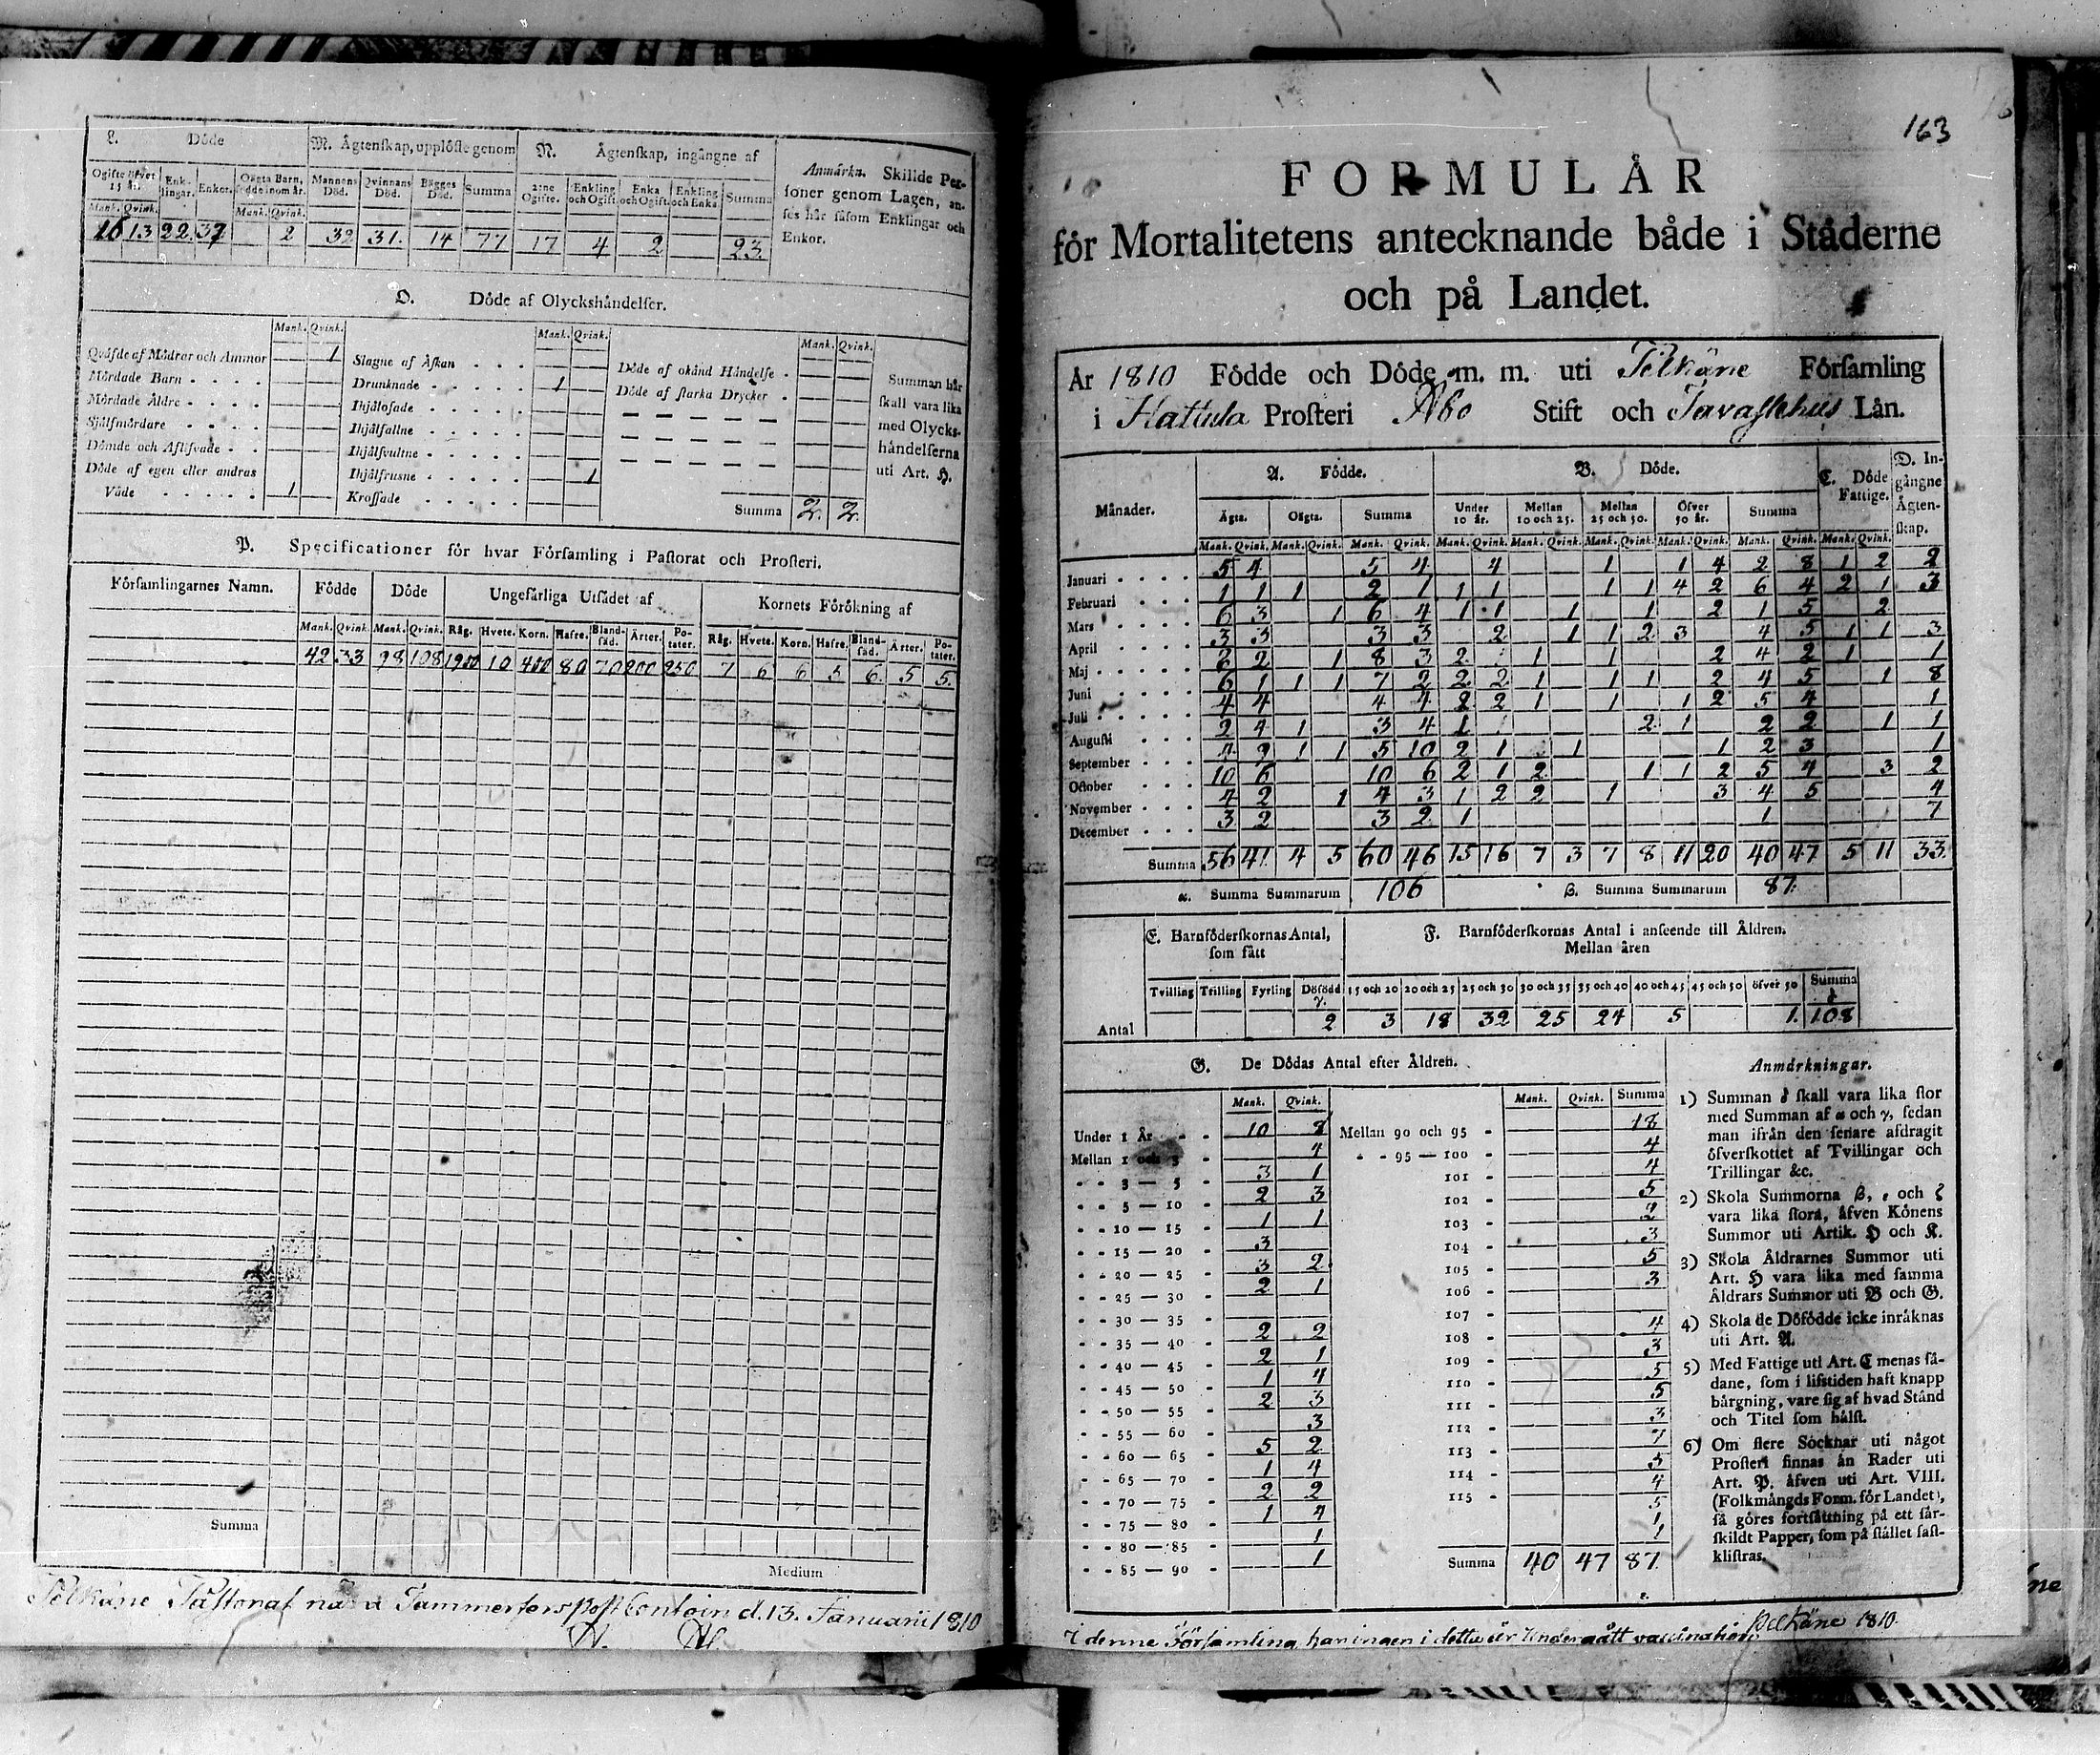 L. Döde
M. Ägtenskap, upplöste genom
N. Ägtenskap, ingångne af
Anmärkn. Skillde Per-
soner genom Lagen, an-
ses här såsom Enklingar och
Enkor.
Ogifte öfver 15 år. Enk-lingar. Enkor. Oägta Barn, födde inom år. Mannens Död. Qvinnans Död. Bägges Död. Summa 2:ne Ogifte. Enkling och Ogift. Enka och Ogift. Enkling och Enka Summa
Mank. Qvink. Mank. Qvink.
16 13 22 37 2 32 31. 14 77 17 4 2 23.
O. Döde af Olyckshändelser.
Mank. Qvink. Mank. Qvink. Mank. Qvink.
Qväfde af Mödrar och Ammor 1
Mördade Barn
Mördade Äldre
Självmördare
Dömde och Aflifvade
Döde af egen eller andras
Våde 1
Slagne af Åskan
Drunknade 1
Ihjälosade
Ihjälfallne
Ihjälsvultne
Ihjälfrusne 1
Krossade
Döde af okänd Händelse
Döde af starka Drycker
Summa 2. 2.
Summan här
skall vara lika
med Olycks-
händelserna
uti Art. H.
P. Specificationer för hvar Församling i Pastorat och Prosteri.
Församlingarnes Namn. Födde Döde Ungefärliga Utsädet af Kornets Förökning af
Mank. Qvink. Mank. Qvink. Råg. Hvete. Korn. Hafre. Bland-säd. Ärter. Po-tater. Råg. Hvete. Korn. Hafre. Bland-säd. Ärter. Po-tater.
42 33 98 108 1900 10 400 80 70 200 250 7 6 6 5 6. 5 5.
Summa
Medium
Pelkäne Pastorat Tammerfors post Contoir d. 13. Januarii 1810
163
FORMULÅR
för Mortalitetens antecknande både i Städerne
och på Landet.
År 1810 Födde och Döde m. m. uti Pelkäne Församling
i Hattula Prosteri Åbo Stift och Tavastehus Län.
Månader. A. Födde. B. Döde. C. Döde Fattige. D. In-gångne Ägten-skap.
Ägta. Oägta. Summa Under 10 år. Mellan 10 och 25. Mellan 25 och 50. Öfver 50 år. Summa
Mank. Qvink. Mank. Qvink. Mank. Qvink. Mank. Qvink. Mank. Qvink. Mank. Qvink. Mank. Qvink. Mank. Qvink. Mank. Qvink.
Januari 5 4 5 4 4 1 1 4 2 8 1 2 2
Februari 1 1 1 2 1 1 1 1 1 4 2 6 4 2 1 3
Mars 6 3 1 6 4 1 1 1 1 2 1 5 2
April 3 3 3 3 2 1 1 2 3 4 5 1 1 3
Maj 8 2 1 8 3 2 1 1 2 4 2 1 1
Juni 6 1 1 1 7 2 2 2 1 1 1 2 4 5 1 8
Juli 4 4 4 4 2 2 1 1 1 2 5 4 1
Augusti 2 4 1 3 4 1 2 1 2 2 1 1
September 4 9 1 1 5 10 2 1 1 1 2 3 1
October 10 6 10 6 2 1 2 1 1 2 5 4 3 2
November 4 2 1 4 3 1 2 2 1 3 4 5 4
December 3 2 3 2 1 1 7
Summa 56 41 4 5 60 46 15 16 7 3 7 8 11 20 40 47 5 11 33.
α. Summa Summarum 106 β. Summa Summarum 87.
E. Barnföderskornas Antal, som fått
F. Barnföderskornas Antal i anseende till Åldren.
Mellan åren
Tvilling Trilling Fyrling Döfödd γ. 15 och 20 20 och 25 25 och 30 30 och 35 35 och 40 40 och 45 45 och 50 öfver 50 Summa δ
Antal 2 3 18 32 25 24 5 1. 108
G. De Dödas Antal efter Åldren.
Mank. Qvink. Mank. Qvink. Summa
Under 1 År 10 8 Mellan 90 och 95 18
Mellan 1 och 3 4 95 — 100 4
3 — 5 3 1 101 4
5 — 10 2 3 102 5
10 — 15 1 1 103 2
15 — 20 3 104 3
20 — 25 3 2 105 5
25 — 30 2 1 106 3
30 — 35 107
35 — 40 2 2 108 4
40 — 45 2 1 109 3
45 — 50 1 4 110 5
50 — 55 2 3 111 5
55 — 60 3 112 3
60 — 65 5 2 113 7
65 — 70 1 4 114 5
70 — 75 2 2 115 4
75 — 80 1 4 5
80 — 85 1 1
85 — 90 1 1
Summa 40 47 87.
Anmärkningar.
1) Summan δ skall vara lika stor
med Summan af α och γ, sedan
man ifrån den senare afdragit
öfverskottet af Tvillingar och
Trillingar &c.
2) Skola Summorna β, ε och ζ
vara lika stora, äfven Könens
Summor uti Artik. H och K.
3) Skola Åldrarnes Summor uti
Art. H vara lika med samma
Åldrars Summor uti B och G.
4) Skola de Döfödde icke inräknas
uti Art. A.
5) Med Fattige uti Art. C menas så-
dane, som i lifstiden haft knapp
bärgning, vare sig af hvad Stånd
och Titel som hälst.
6) Om flere Socknar uti något
Prosteri finnas än Rader uti
Art. P. äfven uti Art. VIII.
(Folkmängds Form. för Landet),
så göres fortsättning på ett sär-
skildt Papper, som på stället fast-
klistras.
I denne Församling har ingen i detta år undergått vaccination Pelkäne 1810.